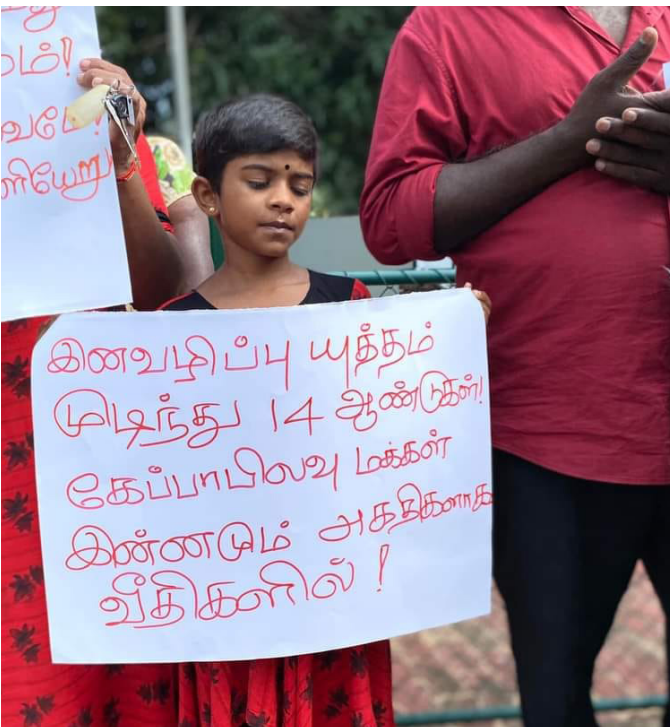 இனவழிப்பு யுத்தம்
முடிந்து 14 ஆண்டுகள்!
கேப்பாபிலவு மக்கள்
இன்னமும் அகதிகளாக
வீதிகளில்!